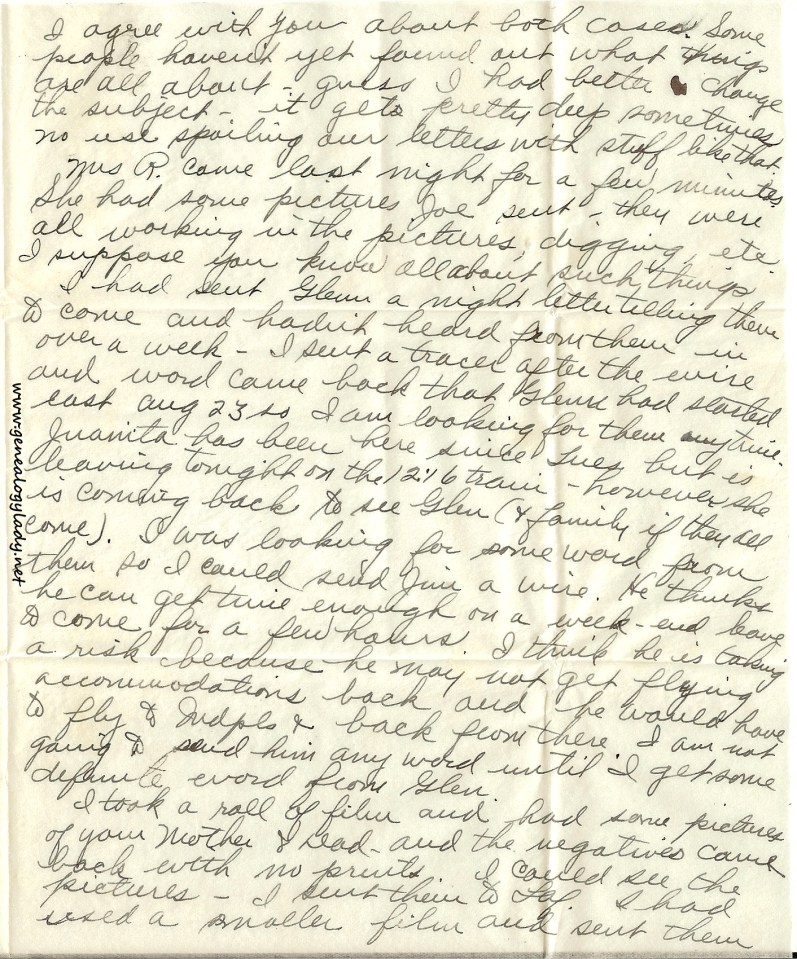 I agree with you about both cases. Some
people haven't yet found out what things
are all about - guess I had better change
the subject - it gets pretty deep sometimes
no use spoiling our letters with stuff like that.
Mrs R. came last night for a few minutes.
She had some pictures Joe sent - they were
all working in the pictures, digging, etc.
I suppose you know all about such things
I had sent Glenn a night letter telling them
to come and hadn't heard from them in
over a week - I sent a tracer after the wire
and word came back that Glenn had started
east Aug 23 so I am looking for them anytime.
Juanita has been here since Tues but is
leaving tonight on the 12:16 train - however she
is coming back to see Glen (& family if they all
come). I was looking for some word from
them so I could send Jim a wire. He thinks
he can get time enough on a week-end leave
to come for a few hours. I think he is taking
a risk because he may not get flying
accommodations back and he would have
to fly to Indpls & back from there. I am not
going to send him any word until I get some
definite word from Glen.
I took a roll of film and had some pictures
of your Mother & Dad - and the negatives came
back with no prints. I could see the
pictures - I sent them to Laf. I had
used a smaller film and sent them
www.genealogylady.net